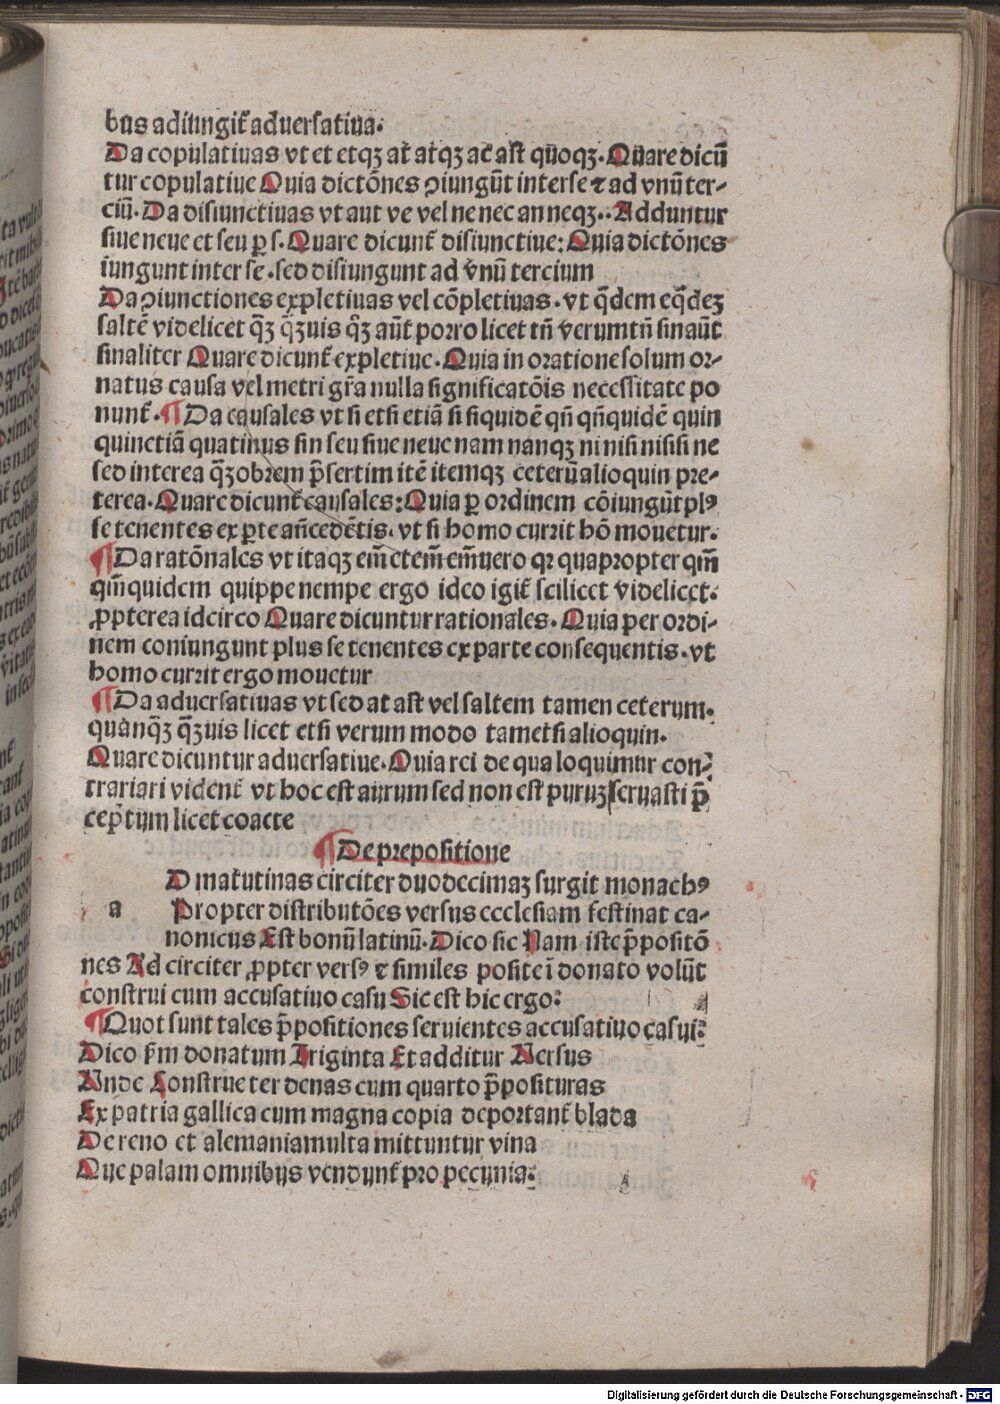 bus adiungit᷑ aduersatiua.
Da copulatiuas vt et etqꝫ at᷑ atqꝫ ac᷑ ast quoqꝫ. Quare dicū
tur copulatiue Quia dictōnes ꝯiungūt inter se ⁊ ad vnū ter-
ciū. Da disiunctiuas vt aut ve vel ne nec an neqꝫ.. Adduntur
siue neue et seu ꝑ s. Quare dicunt᷑ disiunctiue: Quia dictōnes
iungunt inter se. sed disiungunt ad vnū tercium
Da ꝯiunctiones expletiuas vel cōpletiuas. vt q̄dem eq̄deꝫ
saltē videlicet q̄ꝫ q̄ꝫuis q̄ꝫ aūt porro licet tn̄ verumtn̄ sinaūt
sinaliter Quare dicunt᷑ expletiue. Quia in oratione solum or-
natus causa vel metri gr̄a nulla significatōis necessitate po
nunt᷑. ¶ Da causales vt si etsi etiā si siquidē qn̄ qn̄quidē quin
quinetiā quatinus sin seu siue neue nam nanqꝫ ni nisi nisisi ne
sed interea q̄ꝫobrem p̄sertim itē itemqꝫ ceterū alioquin pre-
terea. Quare dicunt᷑ causales: Quia ꝑ ordinem cōiungūt plꝰ
se tenentes ex ꝑte an̄cedētis. vt si homo currit hō mouetur.
¶ Da ratōnales vt itaqꝫ em̄ etem̄ em̄uero qꝛ quapropter qm̄
qm̄quidem quippe nempe ergo ideo igit᷑ scilicet videlicet.
ꝓpterea idcirco Quare dicuntur rationales. Quia per ordi-
nem coniungunt plus se tenentes ex parte consequentis. vt
homo currit ergo mouetur
¶ Da aduersatiuas vt sed at ast vel saltem tamen ceterum.
quanqꝫ q̄ꝫuis licet etsi verum modo tametsi alioquin.
Quare dicuntur aduersatiue. Quia rei de qua loquimur con-
trariari vident᷑ vt hoc est aurum sed non est puruꝫ seruasti p̄
ceptum licet coacte
¶ De prepositione
D matutinas circiter duodecimaꝫ surgit monachꝰ
a Propter distributōes versus ecclesiam festinat ca-
nonicus Est bonū latinū. Dico sic Nam iste p̄positō
nes Ad circiter ꝓpter versꝰ ⁊ similes posite ī donato volūt
construi cum accusatiuo casu Sic est hic ergo:
¶ Quot sunt tales p̄positiones seruientes accusatiuo casui:
Dico ẜm donatum Triginta Et additur Versus
Vnde Construe ter denas cum quarto p̄posituras
Ex patria gallica cum magna copia deportant᷑ blada
De reno et alemania multa mittuntur vina
Que palam omnibus vendunt᷑ pro pecunia:
Digitalisierung gefördert durch die Deutsche Forschungsgemeinschaft - DFG